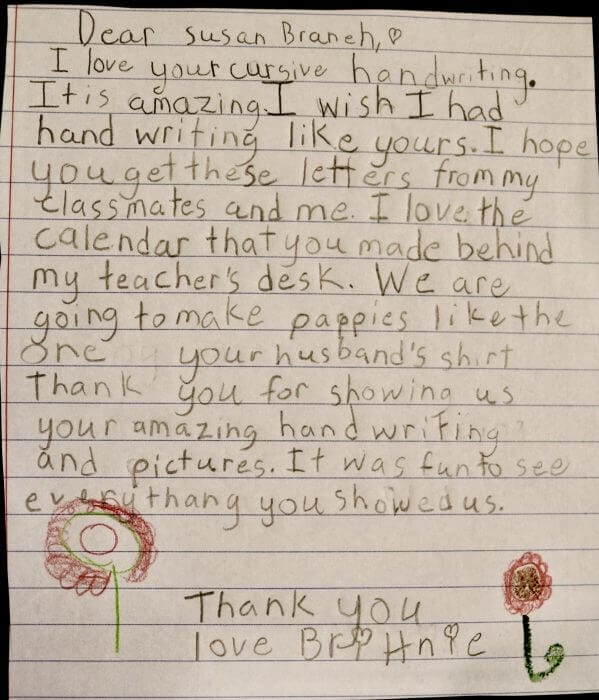 Dear Susan Braneh, ♡
I love your cursive handwriting.
It is amazing. I wish I had
hand writing like yours. I hope
you get these letters from my
classmates and me. I love the
calendar that you made behind
my teacher's desk. We are
going to make pappies like the
one your husband's shirt
Thank you for showing us
your amazing hand writing
and pictures. It was fun to see
everythang you showed us.
Thank you
love Brittnie